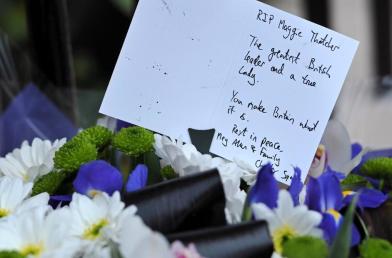 RIP Maggie Thatcher
The greatest British
leader and a true
Lady.
You make Britain what
it is.
Rest in peace.
Alan & Family